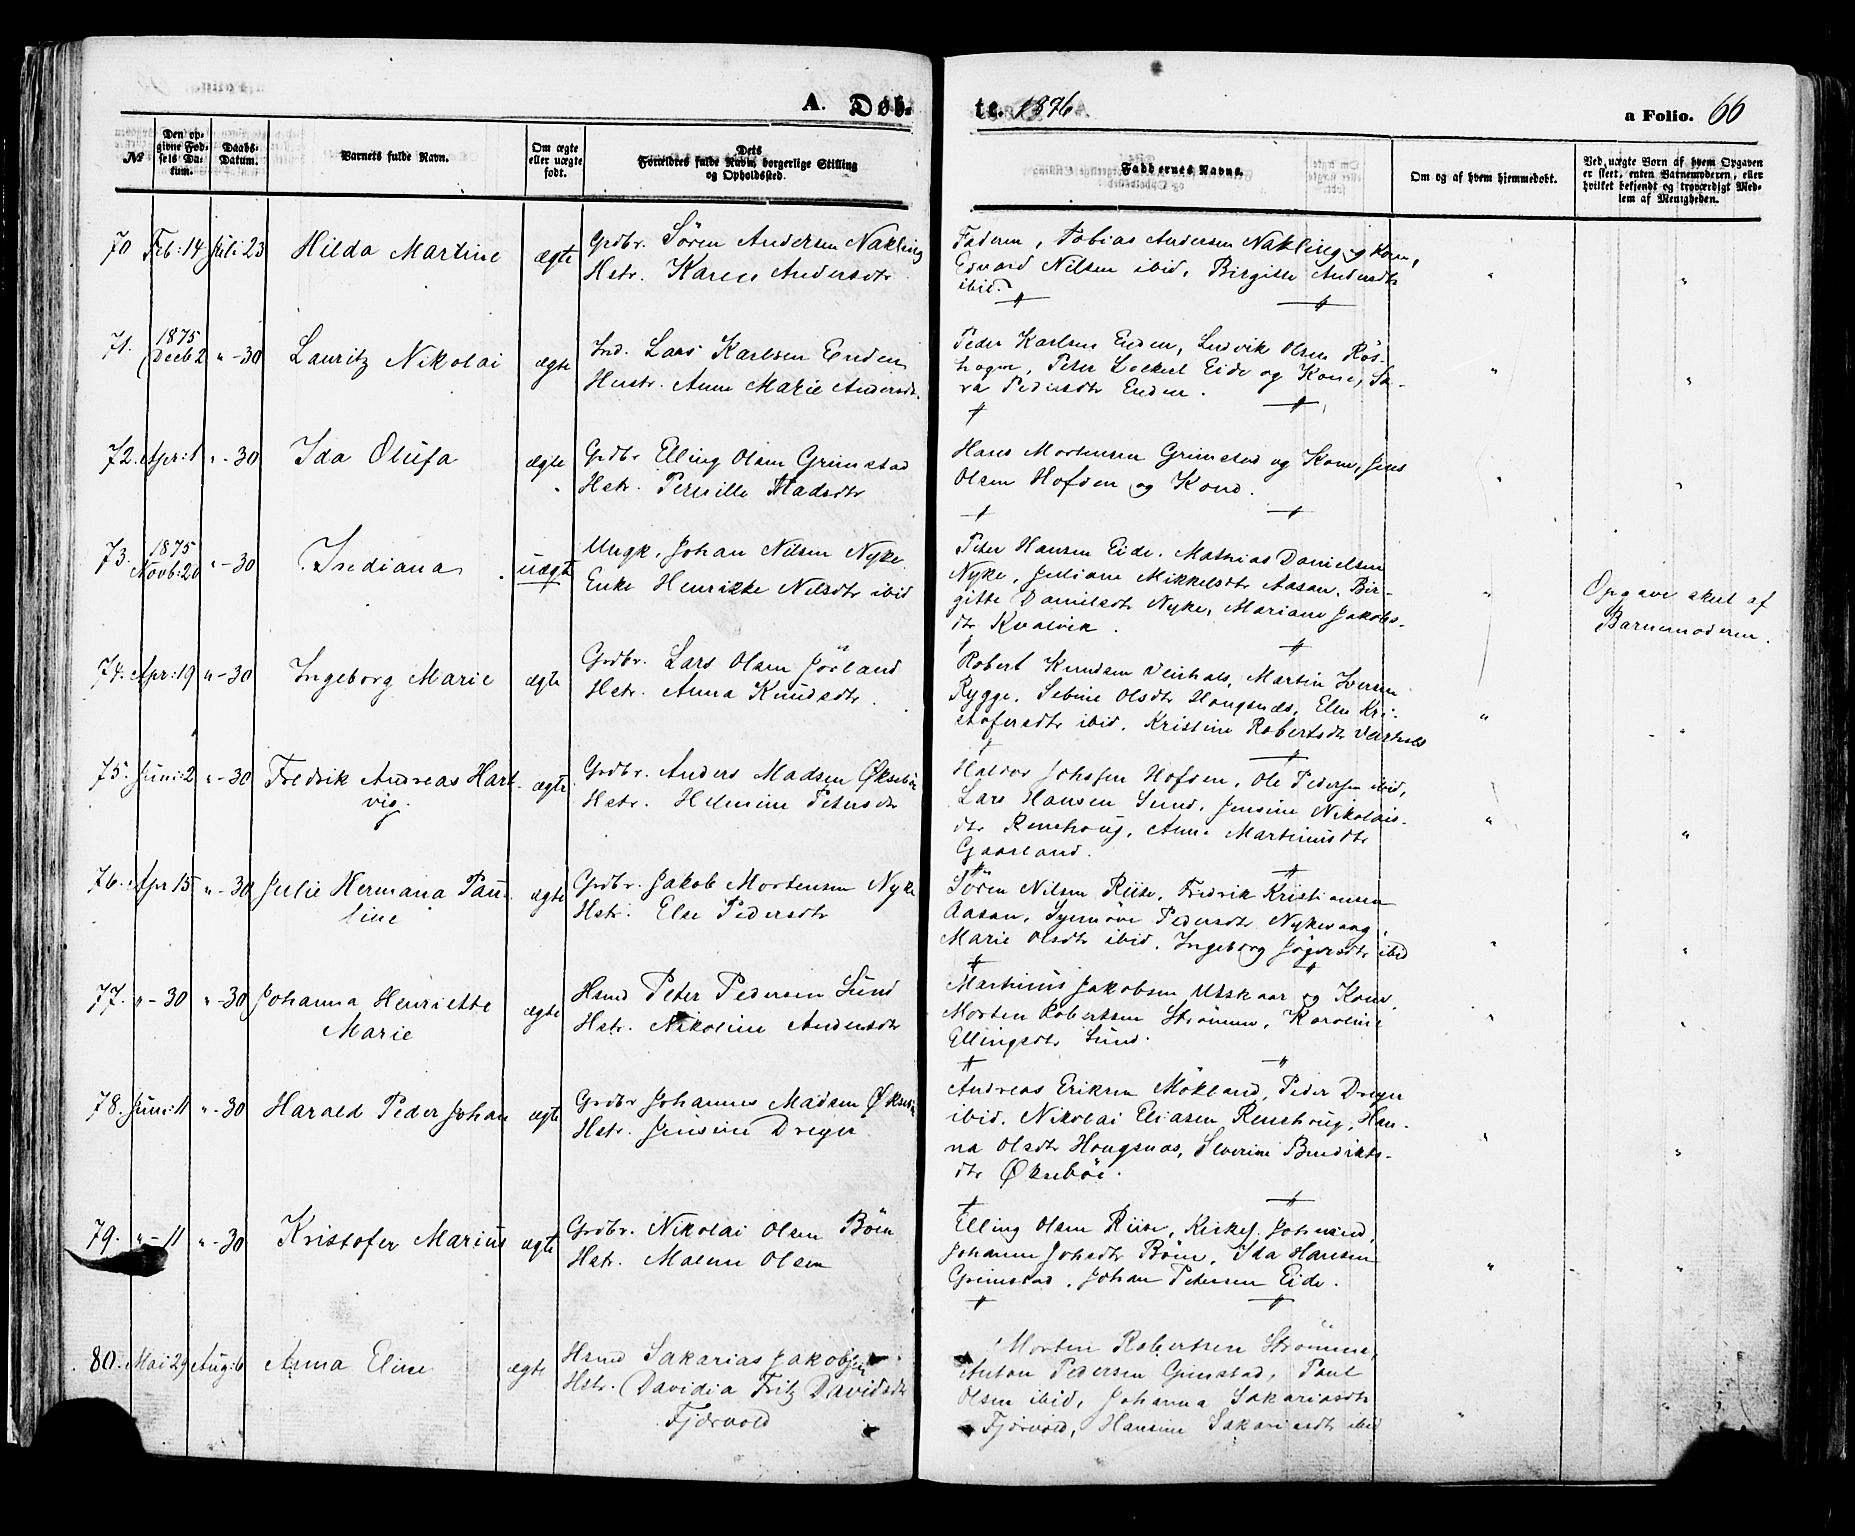 A. Døb-
te. 1876
a Folio. 66
№
Den opgivne Fødsels Datum.
Daabs-Datum.
Barnets fulde Navn.
Om ægte eller uægte født.
Dets Forældres fulde Navn, borgerlige Stilling og Opholdssted.
Faddernes Navne.
Om og af hvem hjemmedøbt.
Ved uægte Børn af hvem Opgaven er skeet, enten Barnemoderen, eller hvilket bekjendt og troværdigt Medlem af Menigheden.
70 Feb: 14 Juli 23 Hilda Martine ægte
Grdbr. Søren Andersen Nakling
Hstr. Karen Andersdtr
Faderen, Tobias Andersen Nakling og Kone,
Edvard Nilsen ibid, Birgitte Andersdtr
ibid.
71. 1875 Decb 2 " -30 Lauritz Nikolai ægte
Ind. Lars Karlsen Enden
Hustr. Anne Marie Andersdtr.
Peder Karlsen Enden, Ludvik Olsen Røs-
hagen, Peter Lockert Eide og Kone, Sa-
ra Pedersdtr Enden.
72. Apr: 1 " -30 Ida Olufa ægte
Grdbr Elling Olsen Grimstad
Hstr. Pernille Madsdtr
Hans Mortensen Grimstad og Kone, Jens
Olsen Hofden og Kone.
73. 1875 Novb: 20 " -30 Indiana uægte
Ungk. Johan Nilsen Nyke
Enke Henrikke Nilsdtr ibid
Peter Hansen Eide. Mathias Danielsen
Nyke, Juliane Mikkelsdtr Aasan, Bir-
gitte Danielsdtr Nyke, Mariane Jakobs-
dtr Kvalvik.
Opgave skeet af
Barnemoderen.
74. Apr: 19 " -30 Ingeborg Marie ægte
Grdbr. Lars Olsen Jörland
Hstr. Anna Knudsdtr.
Robert Knudsen Veirhals, Martin Iversen
Rygge, Sebine Olsdtr Hougsnæs, Elen Kri-
stofersdtr ibid, Kristine Robertsdtr Veirhals
75. Juni: 2 " -30 Fredrik Andreas Hart-
vig. ægte
Grdbr. Anders Madsen Øksebø
Hstr. Helmine Petersdtr
Haldor Johnsen Hofden, Ole Pedersen ibid,
Lars Hansen Sund, Jensine Nikolais-
dtr Renehoug, Anne Martinusdtr
Gaarland.
76. Apr 15 " -30 Julie Hermana Pau-
line ægte
Grdbr. Jakob Mortensen Nyke
Hstr. Else Pedersdtr
Søren Nilsen Riise, Fredrik Kristiansen
Aasan, Synnöve Pedersdtr Nykevaag,
Marie Olsdtr ibid, Ingeborg ibid
77. " -30 " -30 Johanna Henriette
Marie ægte
Hsmd Peter Pedersen Sund
Hstr. Nikoline Andersdtr
Martinus Jakobsen Utskaar og Kone,
Morten Robertsen Strömme, Karoline
Ellingsdtr Sund.
78. Juni: 11 " -30 Harald Peder Johan ægte
Grdbr Johannes Madsen Øksebø
Hstr. Jensine Dreyer
Andreas Eriksen Mökland, Peder Dreyer
ibid, Nikolai Eliasen Renehoug, Han-
na Olsdtr Hougsnæs, Severine Benedikts-
dtr Øksebøe.
79. " -11 " -30 Kristofer Marius ægte
Grdbr. Nikolai Olsen Böen
Hstr. Malene Olsen
Elling Olsen Riise, Kirkes.
Johanna Johnsdtr Böen, Ida Hansen
Grimstad, Johan Petersen Eide.
80. Mai 29 Aug: 6 Anna Eline ægte
Hsmd Sakarias Jakobsen
Hstr. Davidia Fritz Davidsdtr
Fjærvold
Morten Robertsen Strömme,
Anton Pedersen Grimstad, Paul
Olsen ibid, Johanna Sakariasdtr
Fjærvold, Hansine Sakariasdtr ibid